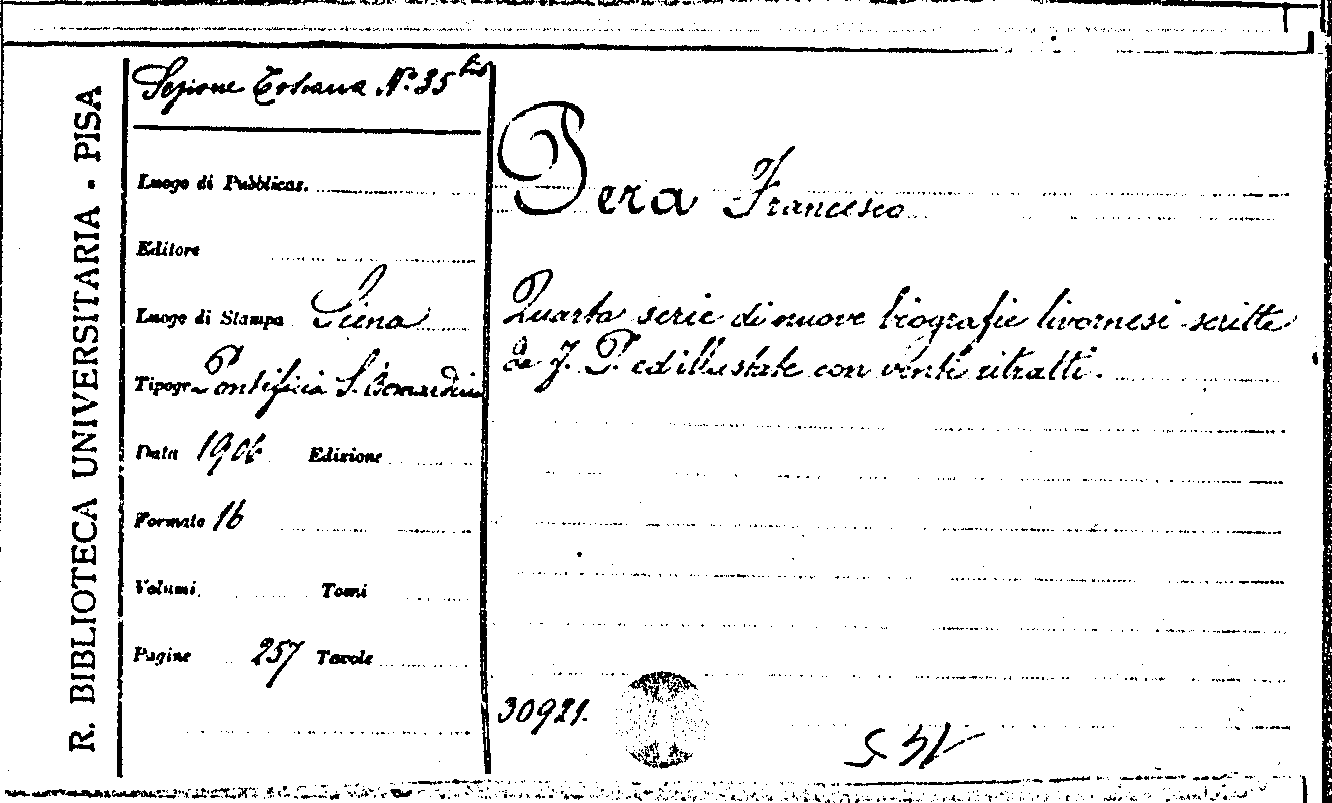 R. BIBLIOTECA UNIVERSITARIA - PISA
Sezione Toscana N.º 35 bis
Luogo di Pubblicaz.
Editore
Luogo di Stampa Siena
Tipogr. Pontificia S. Bernardino
Data 1906 Edizione
Formato 16
Volumi Tomi
Pagine 257 Tavole
Pera Francesco
Quarta serie di nuove biografie livornesi scritte
da F. P. ed illustrate con venti ritratti.
30921.